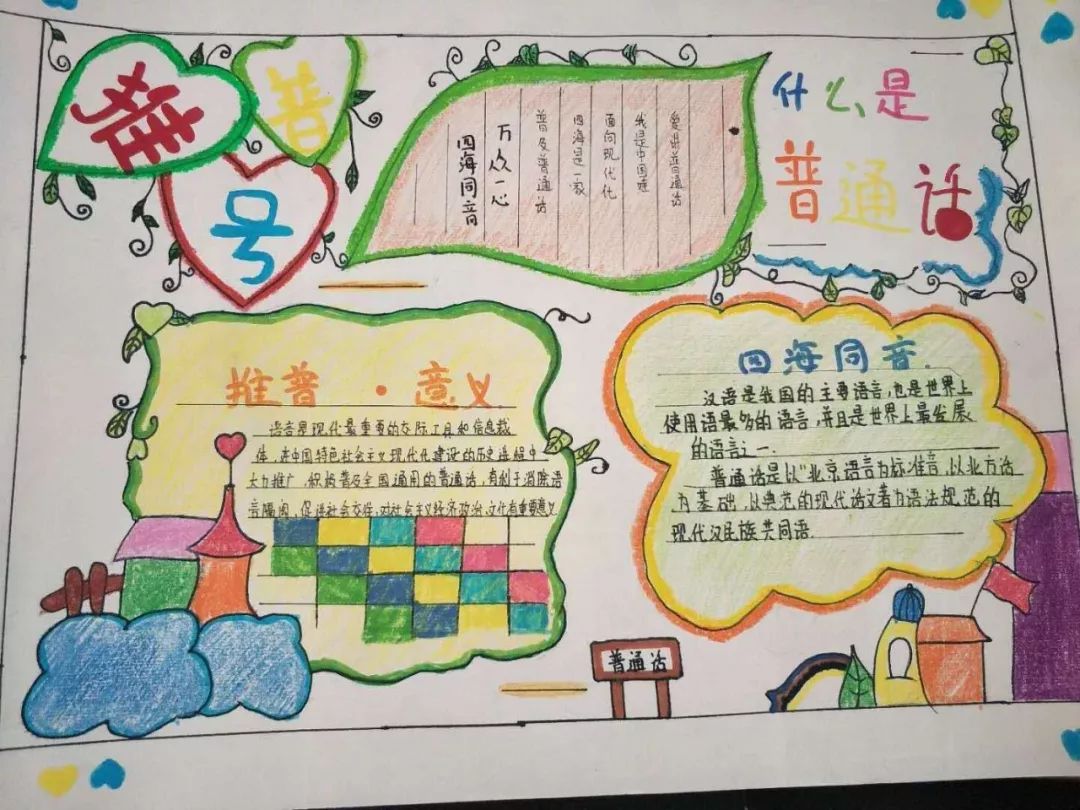 推
普
号
爱讲普通话
我是中国娃
面向现代化
四海是一家
普及普通话
万众一心
四海同音
什么是
普通话
推普·意义
语言是现代最重要的交际工具和信息载
体,在中国特色社会主义现代化建设的历史进程中
大力推广,积极普及全国通用的普通话,有利于消除语
言隔阂,促进社会交往,对社会主义经济政治,文化有重要意义
四海同音.
汉语是我国的主要语言,也是世界上
使用语最多的语言,并且是世界上最发展
的语言之一.
普通话是以"北京语言为标准音,以北方话
为基础,以典范的现代话文著为语法规范的
现代汉民族共同语.
普通话